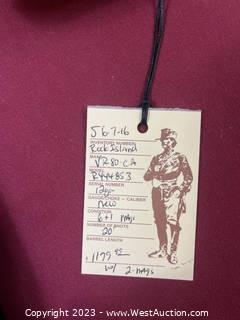 56-7-16
INVENTORY NUMBER
Rock Island
VR80-CA
MODEL
R444853
SERIAL NUMBER
12ga
GAUGE/CHOKE — CALIBER
New
CONDITION
6+1 mags
NUMBER OF SHOTS
20"
BARREL LENGTH
$1179.95
w/ 2-mags
Copyright 2023 - www.WestAuction.com